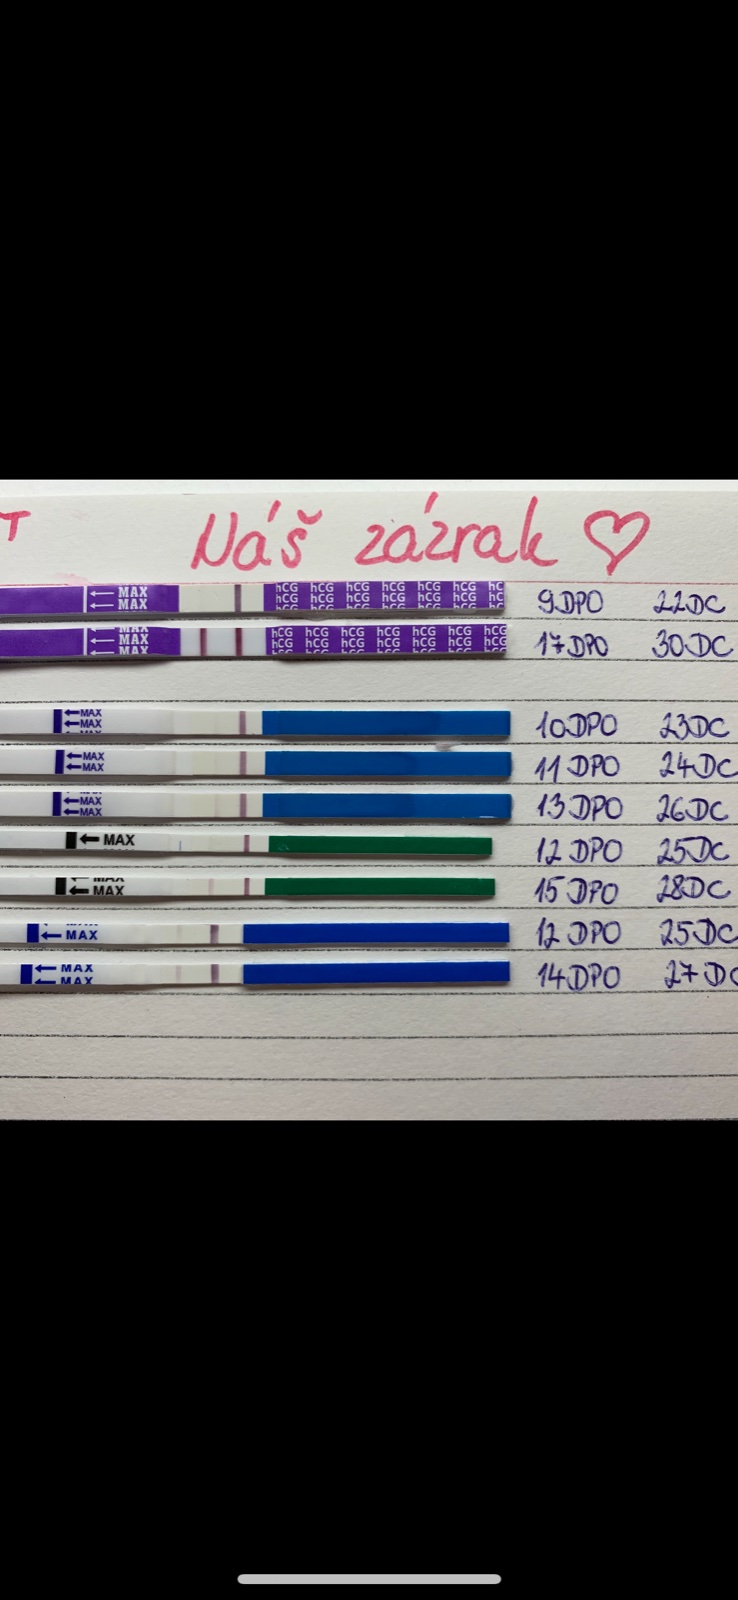 T Náš zázrak
← MAX
← MAX
hCG hCG hCG hCG hCG hCG hC
hCG hCG hCG hCG hCG hCG hC
hCG hCG hCG hCG hCG hCG hC
9DPO 22DC
MAX
← MAX
← MAX
hCG hCG hCG hCG hCG hCG hCG
hCG hCG hCG hCG hCG hCG hCG
hCG hCG hCG hCG hCG hCG hCG
17DPO 30DC
← MAX
← MAX
10DPO 23DC
← MAX
← MAX
11DPO 24DC
← MAX
← MAX
13DPO 26DC
← MAX
12DPO 25DC
MAX
← MAX
15DPO 28DC
MAX
← MAX
12DPO 25DC
← MAX
← MAX
14DPO 27DC